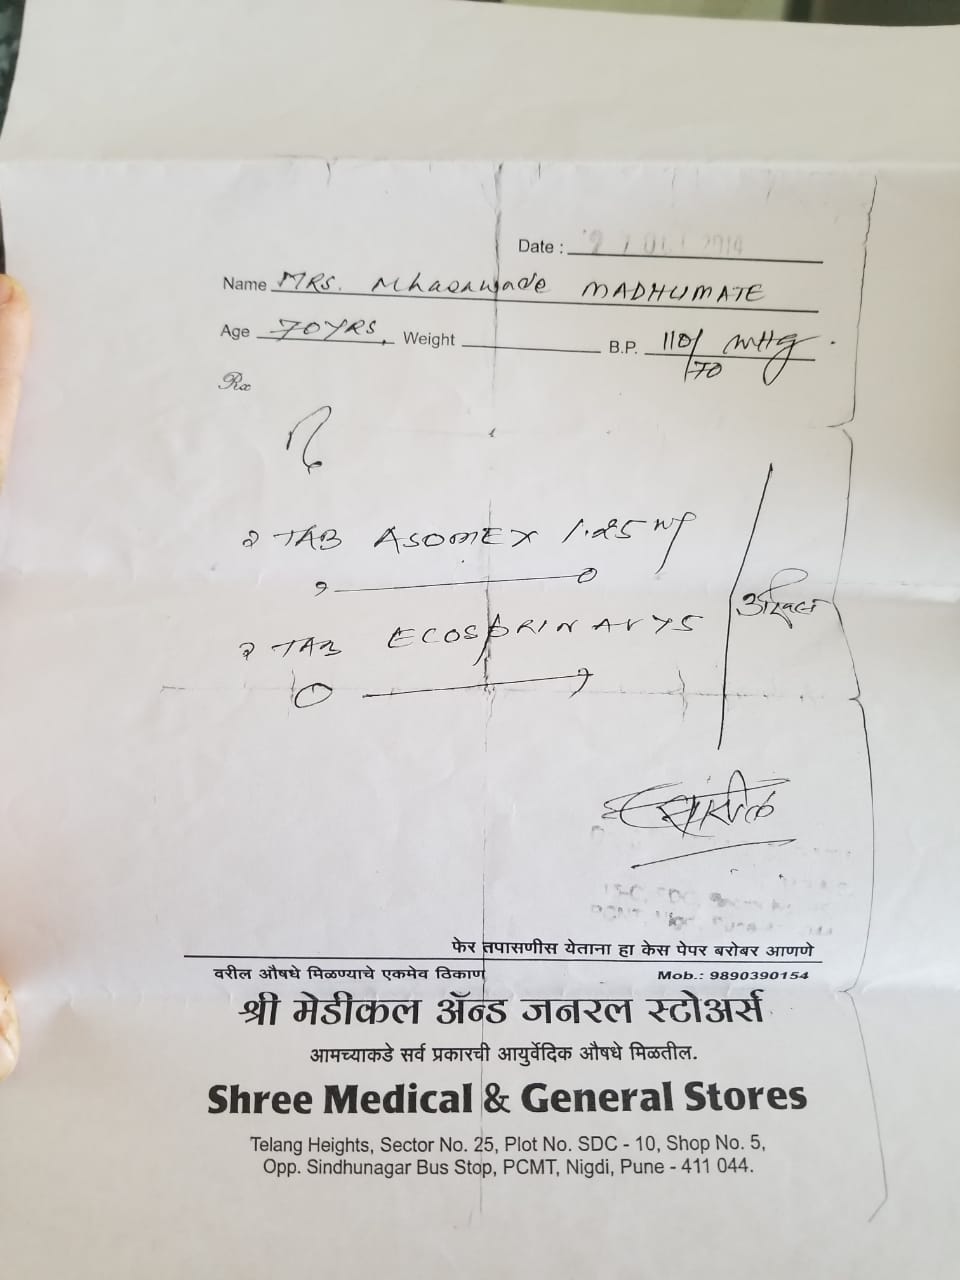 Date : 2 7 OCT 2014
Name MRS. Mhasawade MADHUMATE
Age 70 YRS, Weight B.P. 110/70 mHg
Rx
२ TAB ASOMEX 1.25 mg
२ TAB ECOSPRIN AV 75
फेर तपासणीस येताना हा केस पेपर बरोबर आणणे
वरील औषधे मिळण्याचे एकमेव ठिकाण Mob.: 9890390154
श्री मेडीकल ॲन्ड जनरल स्टोअर्स
आमच्याकडे सर्व प्रकारची आयुर्वेदिक औषधे मिळतील.
Shree Medical & General Stores
Telang Heights, Sector No. 25, Plot No. SDC - 10, Shop No. 5,
Opp. Sindhunagar Bus Stop, PCMT, Nigdi, Pune - 411 044.